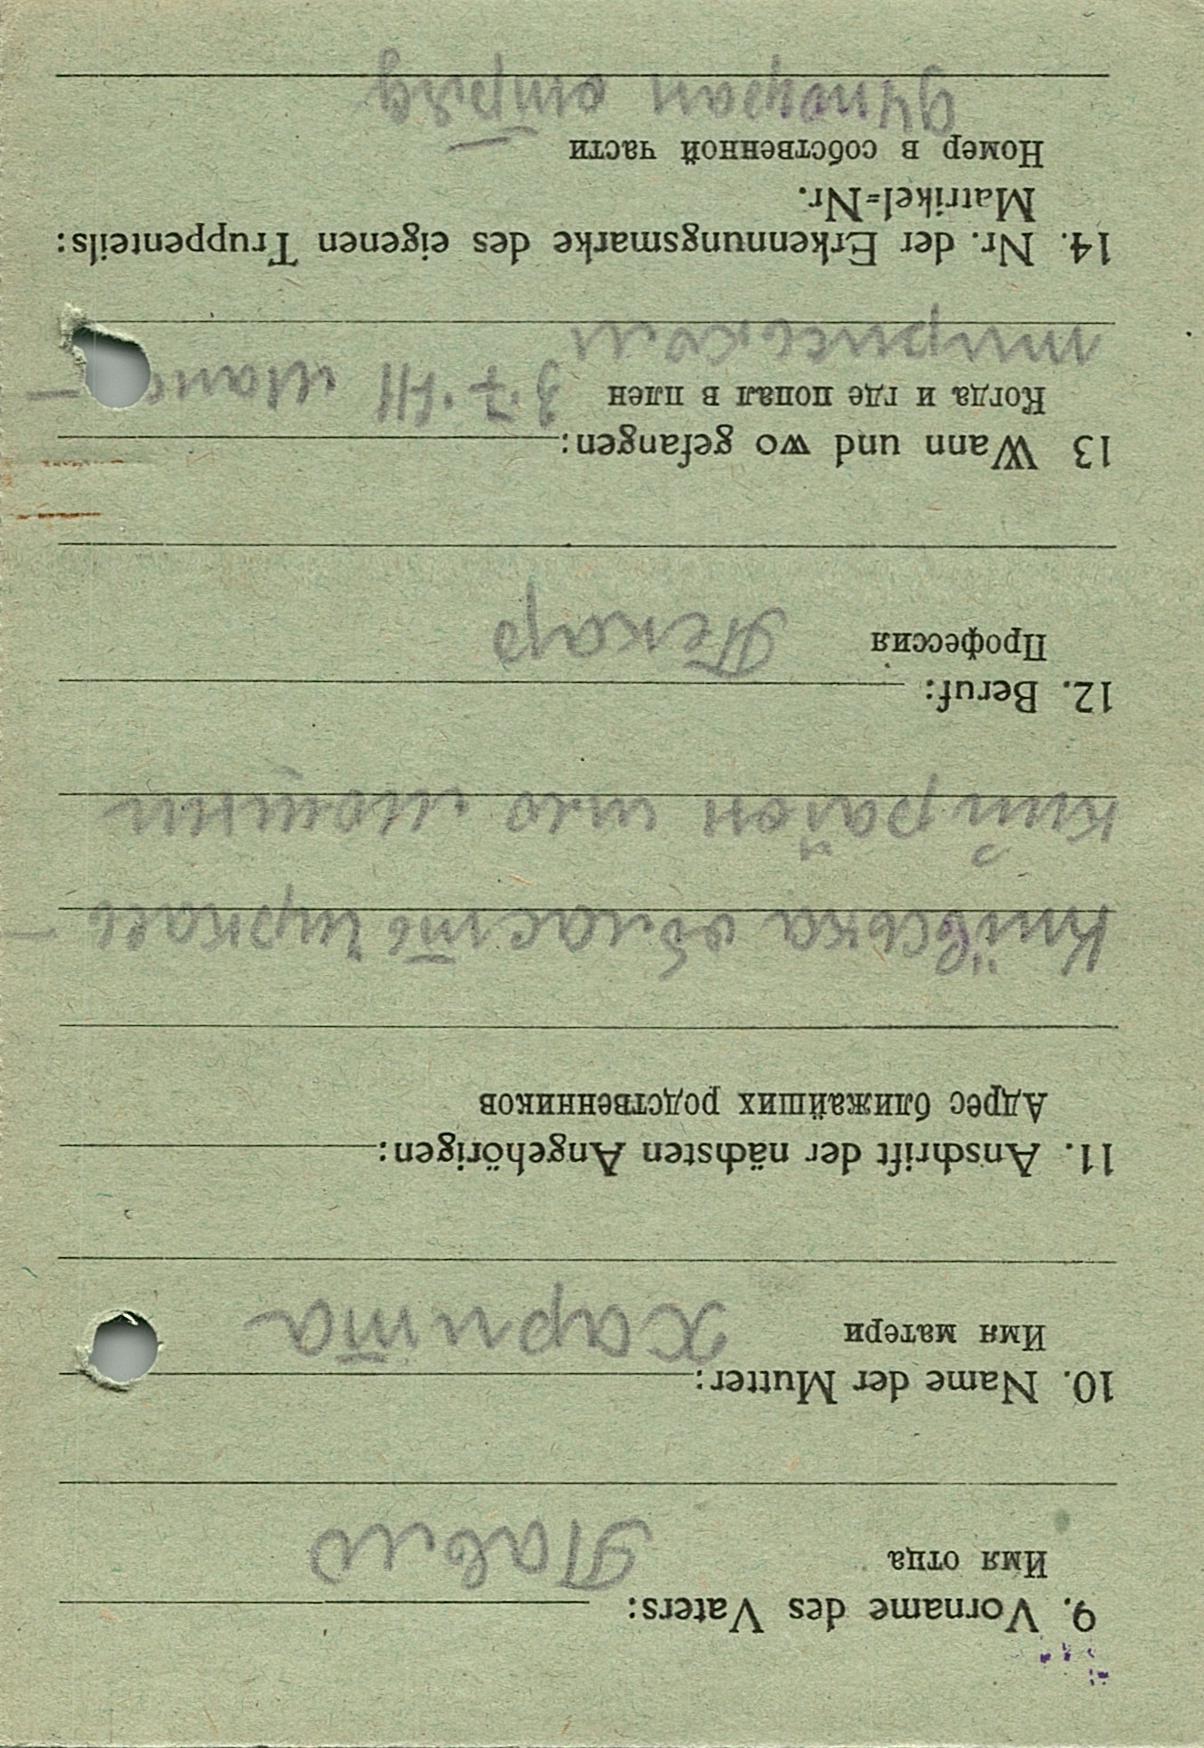 9. Vorname des Vaters:
Имя отца Павло
10. Name der Mutter:
Имя матери Харита
11. Anschrift der nächsten Angehörigen:
Адрес ближайших родственников
Київська область Черкась-
кий район село Мошни
12. Beruf:
Профессия Пекар
13 Wann und wo gefangen:
Когда и где попал в плен 3.7.41
14. Nr. der Erkennungsmarke des eigenen Truppenteils:
Matrikel=Nr.
Номер в собственной части